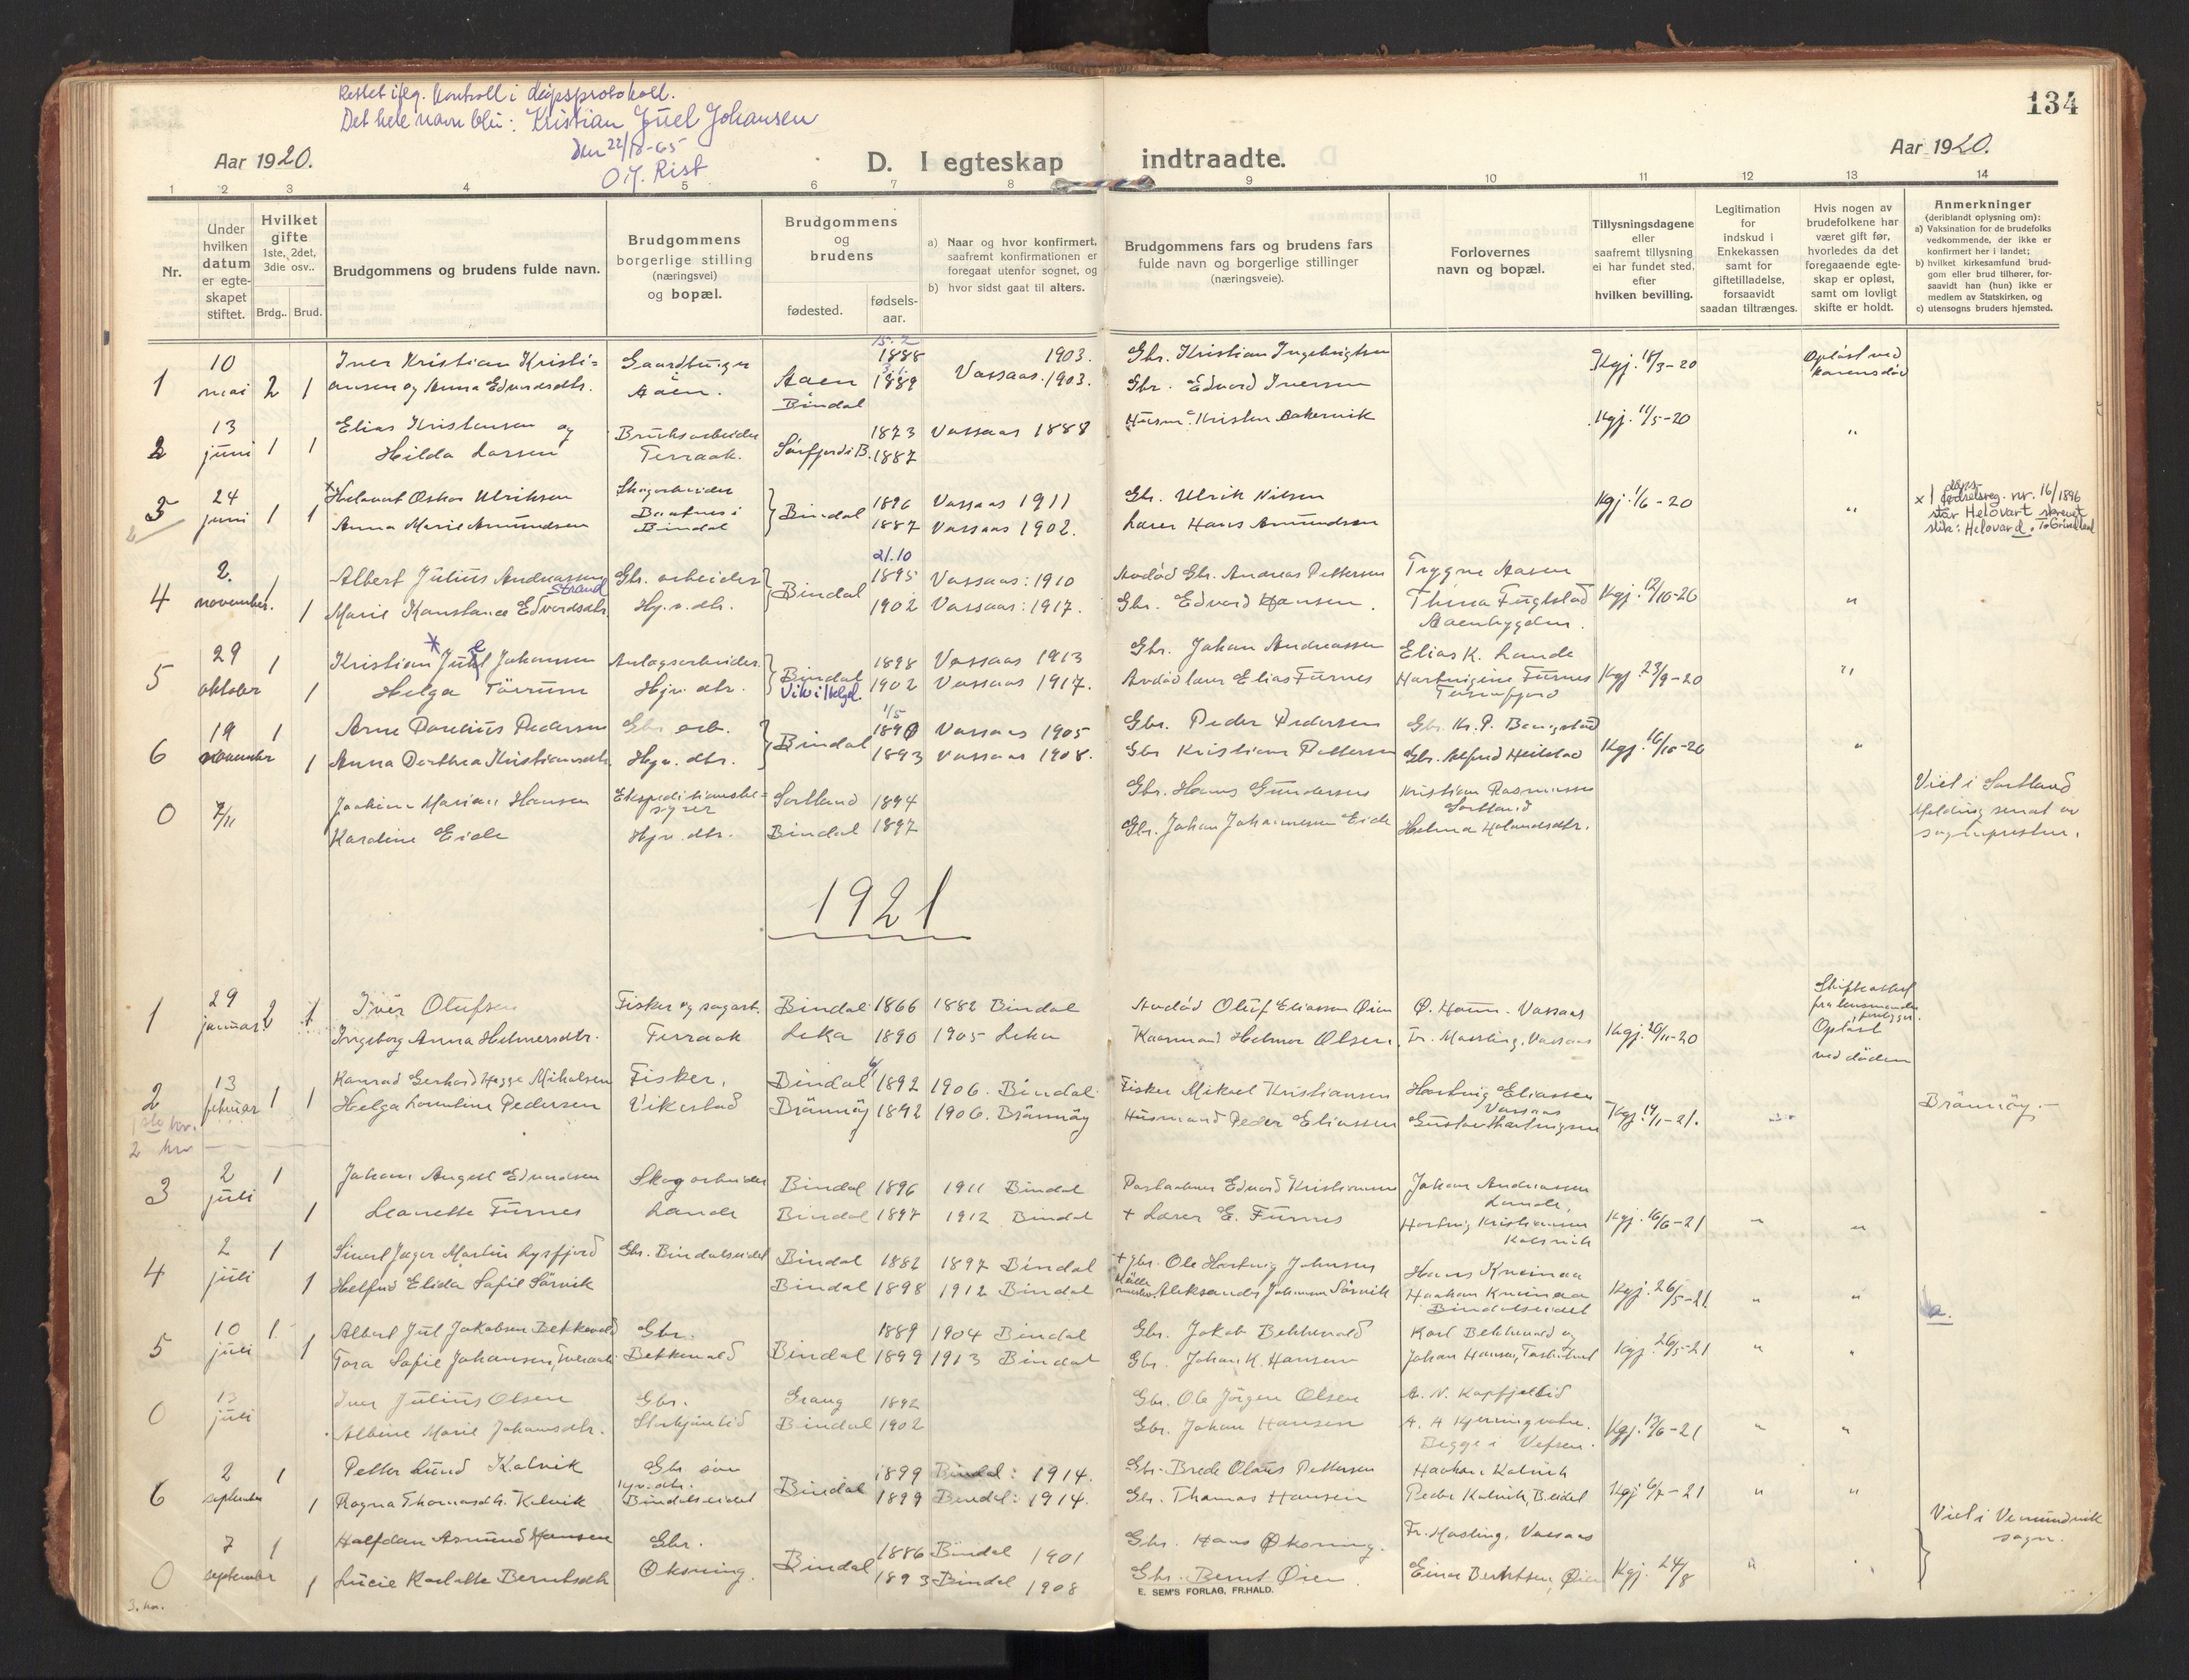 134
Rettet ifлg. kontroll i dåpsprotokoll.
Det hele navn blir: Kristian Juel Johansen
Den 22/10-65
O.J. Rist
Aar 1920.
D. I egteskap indtraadte.
Aar 1920.
1 2 3 4 5 6 7 8 9 10 11 12 13 14
Nr.
Under hvilken datum er egte-skapet stiftet.
Hvilket gifte 1ste, 2det, 3die osv..
Brdg.. Brud.
Brudgommens og brudens fulde navn.
Brudgommens borgerlige stilling (næringsvei) og bopæl.
Brudgommens og brudens
fødested.
fødsels-aar.
a) Naar og hvor konfirmert, saafremt konfirmationen er foregaat utenfor sognet, og
b) hvor sidst gaat til alters.
Brudgommens fars og brudens fars fulde navn og borgerlige stillinger (næringsveie).
Forlovernes navn og bopæl.
Tillysningsdagene eller saafremt tillysning ei har fundet sted, efter hvilken bevilling.
Legitimation for indskud i Enkekassen samt for giftetilladelse, forsaavidt saadan tiltrænges.
Hvis nogen av brudefolkene har været gift før, hvorledes da det foregaaende egte-skap er opløst, samt om lovligt skifte er holdt.
Anmerkninger (deriblandt oplysning om):
a) Vaksination for de brudefolks vedkommende, der ikke er konfirmert her i landet;
b) hvilket kirkesamfund brud-gom eller brud tilhører, for-saavidt han (hun) ikke er medlem av Statskirken, og
c) utensogns bruders hjemsted.
1 10 mai 2 1 Iver Kristian Kristi=ansen og Anna Edvardsdtr. Gaardbruger Aaen. Aaen Bindal 15.2 1888 1889 1903. Vassaas. 1903. Gbr. Kristian Ingebrigtsen Gbr. Edvard Iversen Kgj. 18/3-20 Opløst ved konens død
2 13 juni 1 1 Elias Kristensen og Hilda Larsen Bruksarbeider Terraak. Sørfjord i B. 1873 1887 Vassaas 1888 Husm. Kristen Aakervik Kgj. 11/5-20 "
3 24 juni 1 1 Helovart Oskar Ulriksen Anna Marie Amundsen Skogarbeider Bindal Bindal 1896 1887 Vassaas 1911 Vassaas 1902. Gbr. Ulrik Nilsen Lærer Hans Amundsen Kgj. 1/6-20 " x I dåps- fødselsreg. nr. 16/1896 står Helovart skrevet slik: Helovard.
4 2. november. 1 1 Albert Julius Andreassen Strand Marie Konstance Edvardsdtr. Gbr. arbeider Hj.v. dtr. Bindal 21.10 1895 1902 Vassaas: 1910 Vassaas: 1917. Avdød Gbr. Andreas Pettersen Gbr. Edvard Hansen. Trygve Aasen Thina Fuglstad Aaenbygden. Kgj. 12/10-20 "
5 29 oktober 1 1 Kristian Juel Johansen Helga Tøerum Anlægsarbeider Hjv. dtr. Bindal Vik i Helgel. 1898 1902 Vassaas 1913 Vassaas 1917. Gbr. Johan Andreassen Avdød lærer Elias Furnes Elias K. Lande Hartvigine Furnes Kgj. 23/9-20 "
6 19 november 1 1 Arne Paulius Pedersen Anna Dorthea Kristiansdtr. Gbr. arb. Hj.v. dtr. Bindal 1/5 1890 1893 Vassaas 1905 Vassaas 1908. Gbr. Peder Pedersen Gbr Kristian Pettersen Gbr. Kr. P. Bangstad Gbr. Alfred Heilstad Kgj. 16/10-20 "
0 7/11 Joakim Marius Hansen Karoline Eide Ekspeditionsbe=styrer Hjv. dtr. Sortland Bindal 1894 1897 Gbr. Hans Gundersen Gbr. Johan Johannesen Eide Kristian Rasmussen Sortland Viet i Sortland Melding sendt av sognepresten.
1921
1 29 januar 2 1 Iver Olufsen Ingeborg Anna Helmersdtr. Fisker og sagarb. Terraak Bindal Leka 1866 1890 1882 Bindal 1905 Leka Avdød Oluf Eliassen Øien Kaarmand Helmer Olsen Ø. Horn. Vassaas Fr. Moesling, Vassaas Kgj. 20/11-20 Skifteattest fra lensmanden foreligger. Opløst ved døden
2 13 februar 1 1 Konrad Gerhard Hegge Mikalsen Helga Lorentine Pedersen Fisker, Vikestad Bindal Brønnøy 1892 1892 1906. Bindal. 1906. Brønnøy Fisker Mikael Kristiansen Husmand Peder Eliassen Hartvig Eliassen Vassaas Gustav Hartvigsen Kgj. 14/1-21. Brønnøy.
3 2 juli 1 1 Johan August Edvardsen Leanette Furnes Skogarbeider Lande Bindal Bindal 1896 1897 1911 Bindal 1912 Bindal Postaabner Edvard Kristiansen + Lærer E. Furnes Johan Andreassen Lande, Hartvig Kristiansen Kalsvik Kgj. 16/6-21 " "
4 2 juli 1 1 Sivert Jæger Martin Lysfjord Helfrid Elida Sofie Sørvik Gbr. Bindalseidet Bindal Bindal 1882 1898 1897 Bindal 1912 Bindal + gbr. Ole Hartvig Johnsen Aleksander Johansen Sørvik Hans Kveinaa Haakon Kveinaa Bindalseidet Kgj. 26/5-21. " "
5 10 juli 1 1 Albert Jul Jakobsen Bekkevold Tora Sofie Johansen, Gbr. Bekkevold Bindal 1889 1899 1904 Bindal 1913 Bindal Gbr. Jakob Bekkevold Gbr. Johan K. Hansen Karl Bekkevold og Johan Hansen, Kgj. 26/5-21 " "
0 13 juli Iver Julius Olsen Albine Marie Johansdtr. Gbr. Grong Bindal 1892 1902 Gbr. Ole Jørgen Olsen Gbr. Johan Hansen A. N. Kapfjellid Begge i Vefsen. Kgj. 13/6-21 " "
6 2 september 1 1 Petter Lund Kalvik Ragna Thomasdtr. Kalvik Gbr. søn Bindalseidet Bindal 1899 1899 Bindal: 1914. Bindal: 1914. Gbr. Brede Olaus Pettersen Gbr. Thomas Hansen Haakon Kalvik Peder Kalvik, B.eidet Kgj 6/7-21 " "
0 7 september 1 1 Halfdan Asmund Hansen Lucie Kaslotte Berntsdtr. Gbr. Øksning. Bindal 1886 1893 Bindal 1901 Bindal 1908 Gbr. Hans Øksning. Gbr. Bernt Øien. Fr. Mosling, Vassaas Einar Berntsen, Øien Kgj. 24/8 " Viet i Vemundvik sogn.
3. kv.
E. SEM'S FORLAG, FR.HALD.